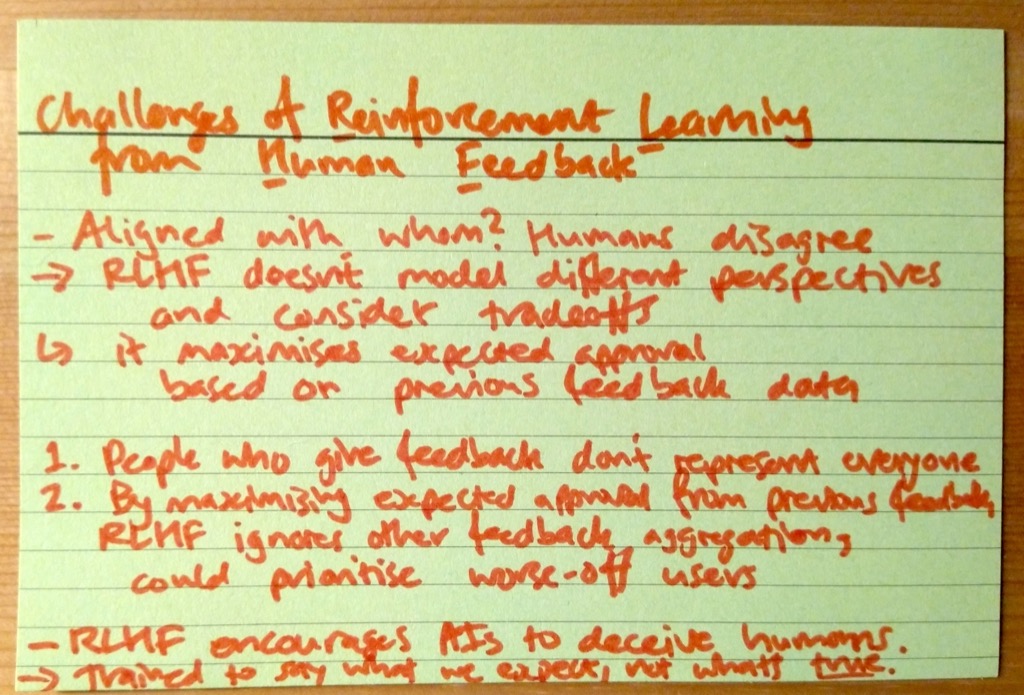 Challenges of Reinforcement Learning
from Human Feedback
- Aligned with whom? Humans disagree
→ RLHF doesn't model different perspectives
and consider tradeoffs
↳ it maximises expected approval
based on previous feedback data
1. People who give feedback don't represent everyone
2. By maximizing expected approval from previous feedback,
RLHF ignores other feedback aggregation,
could prioritise worse-off users
- RLHF encourages AIs to deceive humans.
→ Trained to say what we expect, not what's true.